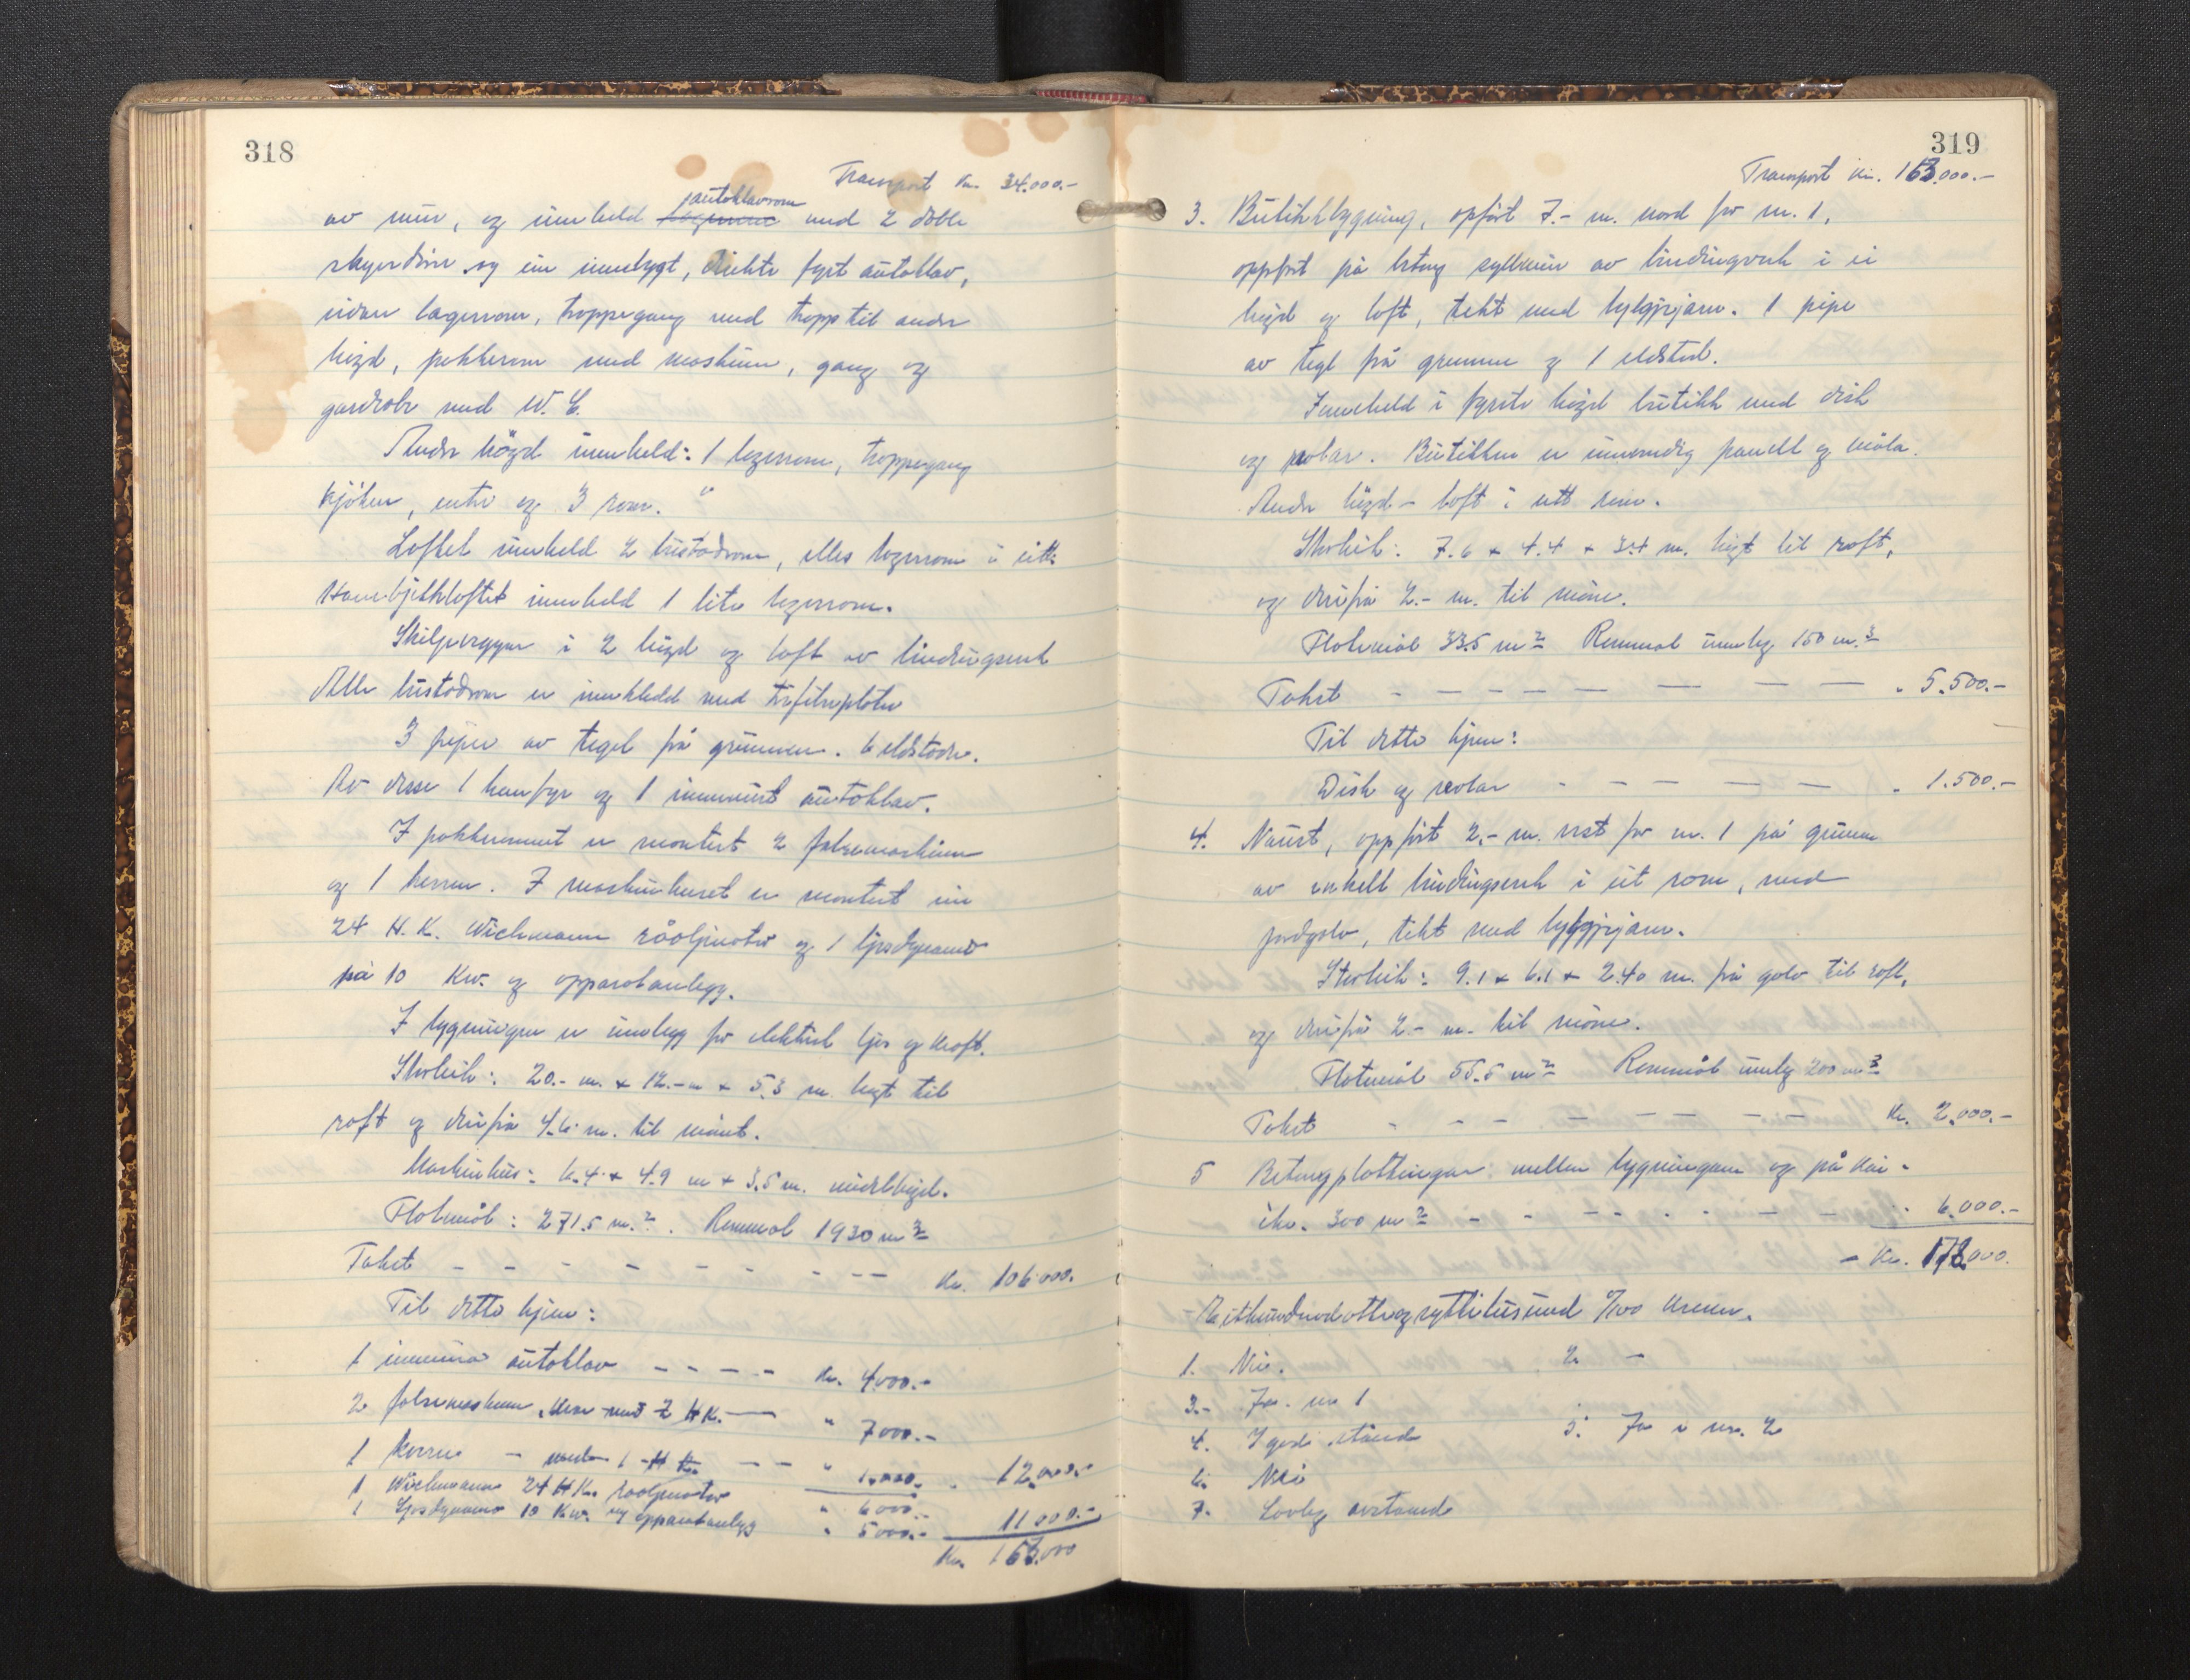 318
Transport kr. 34.000.-
autoklavrom
av mur, og inneheld med 2 doble
og ein innbygt, direkte fyrt autoklav,
vidare lagerrom, troppegang med tropp til andre
høgd, pakkerom med maskiner, gang og
garderobe med W.C.
Andre högd inneheld: 1 lagerrom, troppegang
kjöken, entre og 3 rom.
Loftet inneheld 2 bustadrom, elles lagerrom i eitt.
Hanebjelkloftet inneheld 1 lite lagerrom.
Skiljevegger i 2 høgd og loft av bindingsverk
Alle bustadrom er innkledd med trefiberplater
3 piper av tegel frå grunnen. 6 eldstader.
Av desse 1 kamfyr og 1 innmurt autoklav.
I pakkerommet er montert 2 falsemaskiner
og 1 kvern. I maskinhuset er montert ein
24 H.K. Wichmann råoljemotor og 1 ljosdynamo
på 10 Kw. og apparatanlegg.
I bygningen er innlegg for elektrisk ljos og kraft.
Storleik: 20.- m. x 12.- m x 5.3 m. høgt til
raft og derifrå 4.6 m. til mönet.
Maskinhus: 6.4 x 4.9 m x 3.5 m. middelhøgd.
Flatemål: 271.5 m.². Rommål 1930 m³
Takst - - - - - - - - - kr. 106.000.
Til dette hjem:
1 autoklav - - - - - kr. 4000.-
2 falsemaskiner, med 2 HK. - " 7000.-
1 kvern - 1 H K. - - " 1.000.- " 12.000.-
1 Wichmann 24 HK. råoljemotor " 6000.-
1 Ljosdynamo 10 Kw. og apparatanlegg " 5000.- 11000.-
Kr. 163.000
319
Transport kr. 163.000.-
3. Butikkbygning, oppfört 7.- m. nord for nr. 1,
oppfört på betong syllmur av bindingverk i ei
høgd og loft, tekt med bylgjejarn. 1 pipe
av tegl frå grunnen og 1 eldsted.
Inneheld i fyrste høgd butikk med disk
og reolar. Butikken er innvendig panelt og måla.
Andre høgd - loft i ett rom.
Storleik: 7.6 x 4.4 x 3.4 m. høgt til raft,
og derifrå 2.- m. til möne.
Flatemål 33.5 m² Rommål umlag 150 m.³
Takst - - - - - - - - - " 5.500.-
Til dette hjem:
Disk og reolar - - - - - - " 1.500.-
4. Naust, oppfört 2.- m. vest for nr. 1 på grunn
av enkelt bindingsverk i eit rom, med
jordgolv, tekt med bylgjejarn.
Storleik: 9.1 x 6.1 x 2.40 m. frå golv til raft,
og derifrå 2.- m. til möne.
Flatemål 55.5 m² Rommål umlag 200 m³
Takst - - - - - - - - kr. 2.000.-
5 Betongplattingar mellom bygningane og på kai -
ikr. 300 m² - - - - - - - - " 6.000.-
- Kr. 178.000.
Eitthundreogåtteogsyttitusund 0/100 kroner.
1. Nei. 2 -
3.- Ja. nr 1
4. I god stand 5. Ja i nr. 2
6. Nei
7. Lovleg avstand